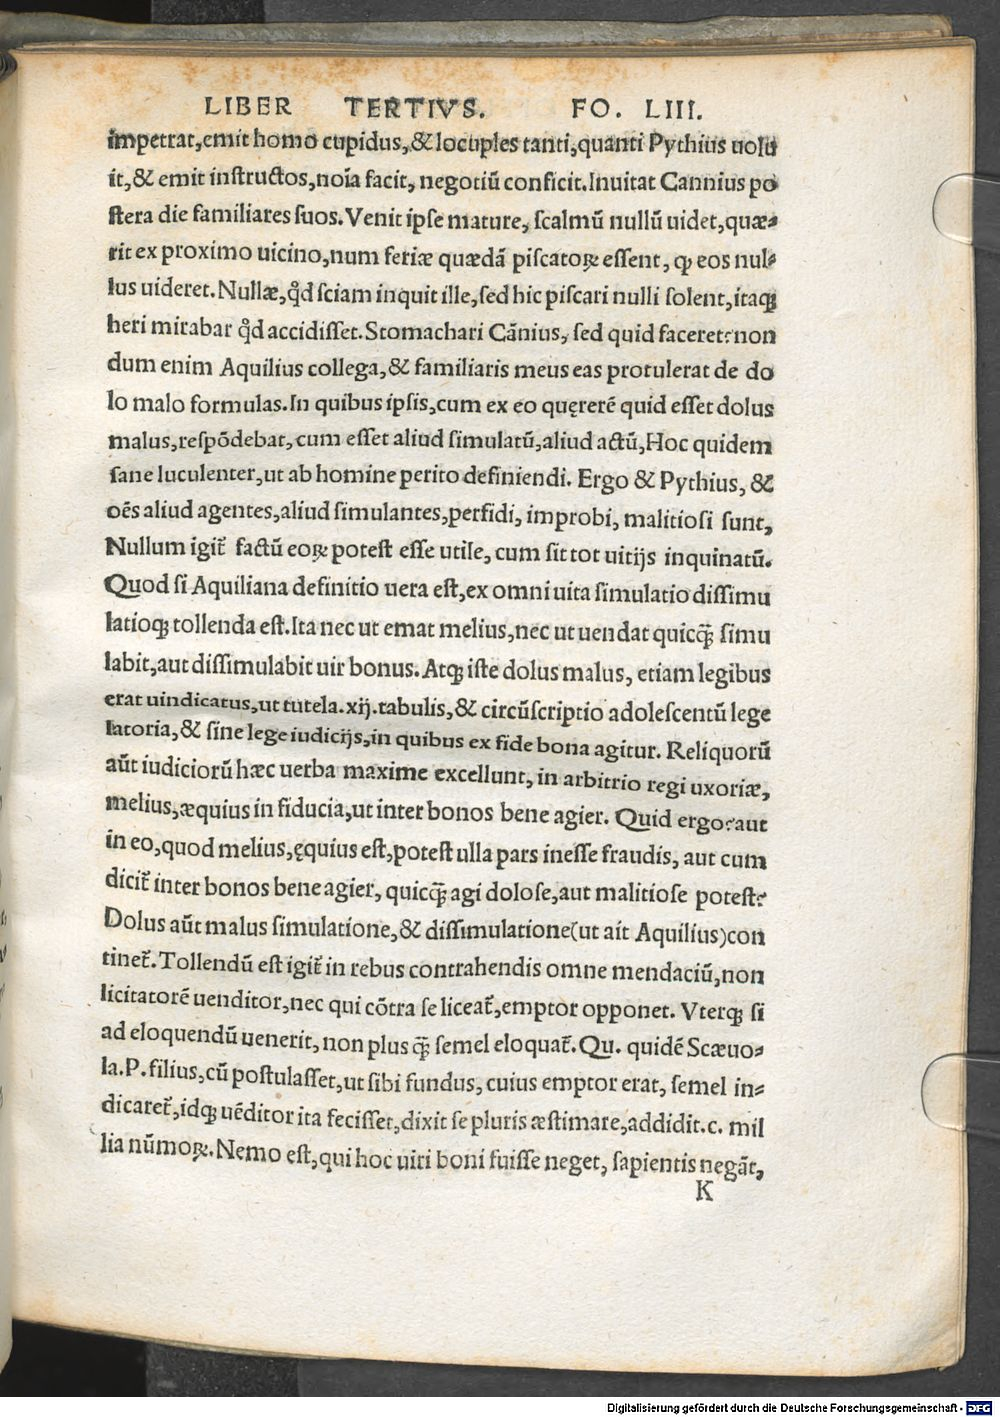 LIBER TERTIVS. FO. LIII.
impetrat,emit homo cupidus,& locuples tanti,quanti Pythius uolu
it,& emit instructos,noīa facit, negotiū conficit.Inuitat Cannius po
stera die familiares suos.Venit ipse mature, scalmū nullū uidet,quæ⸗
rit ex proximo uicino,num feriæ quædā piscatoꝝ essent, ꝙ eos nul⸗
lus uideret.Nullæ,qd̉ sciam inquit ille,sed hic piscari nulli solent,itaqꝫ
heri mirabar qd̉ accidisset.Stomachari Cānius, sed quid faceret?non
dum enim Aquilius collega,& familiaris meus eas protulerat de do
lo malo formulas.In quibus ipsis,cum ex eo quęrerē quid esset dolus
malus,respōdebat,cum esset aliud simulatū,aliud actū,Hoc quidem
sane luculenter,ut ab homine perito definiendi. Ergo & Pythius, &
oēs aliud agentes,aliud simulantes,perfidi, improbi, malitiosi sunt,
Nullum igit̃ factū eoꝝ potest esse utile, cum sit tot uitijs inquinatū.
Quod si Aquiliana definitio uera est,ex omni uita simulatio dissimu
latioqꝫ tollenda est.Ita nec ut emat melius,nec ut uendat quicq̃ simu
labit,aut dissimulabit uir bonus. Atqꝫ iste dolus malus, etiam legibus
erat uindicatus,ut tutela.xij.tabulis,& circūscriptio adolescentū lege
latoria,& sine lege iudicijs,in quibus ex fide bona agitur. Reliquorū
aūt iudiciorū hæc uerba maxime excellunt, in arbitrio regi uxoriæ,
melius,æquius in fiducia,ut inter bonos bene agier. Quid ergo?aut
in eo,quod melius,ęquius est,potest ulla pars inesse fraudis, aut cum
dicit̃ inter bonos bene agier, quicq̃ agi dolose,aut malitiose potest?
Dolus aūt malus simulatione,& dissimulatione(ut ait Aquilius)con
tinet̃.Tollendū est igit̃ in rebus contrahendis omne mendaciū,non
licitatorē uenditor,nec qui cōtra se liceat̃,emptor opponet. Vterqꝫ si
ad eloquendū uenerit, non plus q̃ semel eloquat̃.Qu. quidē Scæuo⸗
la.P.filius,cū postulasset,ut sibi fundus, cuius emptor erat, semel in⸗
dicaret̃,idqꝫ uēditor ita fecisset,dixit se pluris æstimare,addidit.c. mil
lia nūmoꝝ.Nemo est,qui hoc uiri boni fuisse neget, sapientis negāt,
K
Digitalisierung gefördert durch die Deutsche Forschungsgemeinschaft - DFG